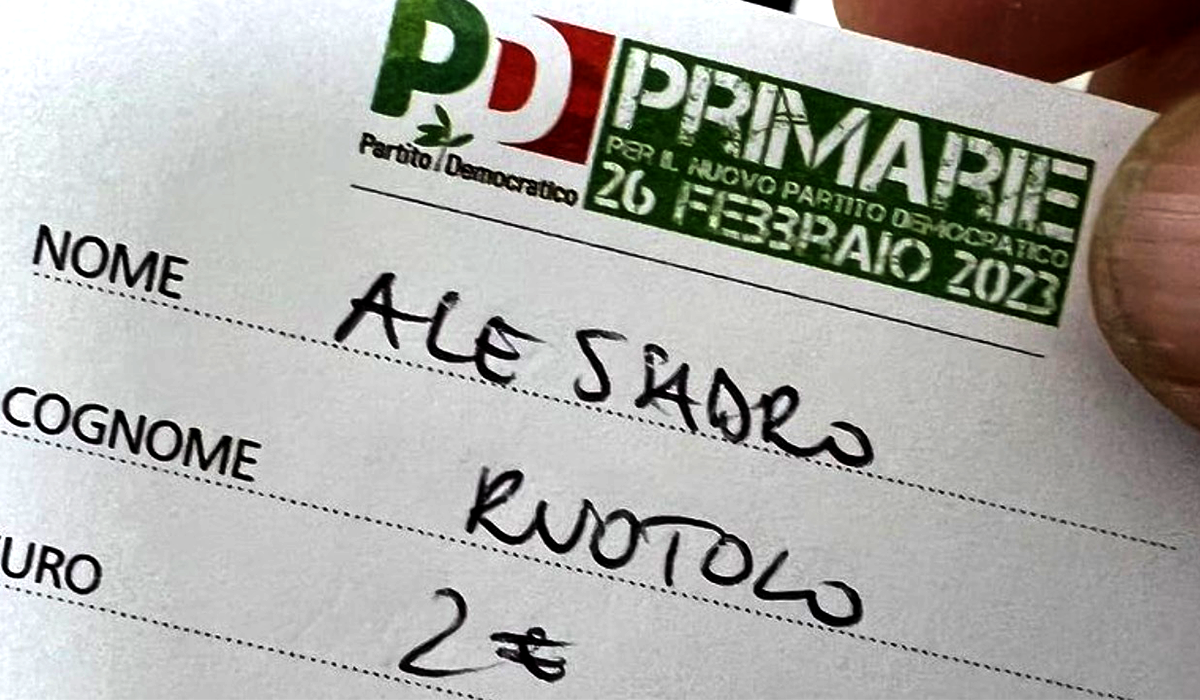 PD
Partito Democratico
PRIMARIE
PER IL NUOVO PARTITO DEMOCRATICO
26 FEBBRAIO 2023
NOME ALESSADRO
COGNOME RUOTOLO
EURO 2 €